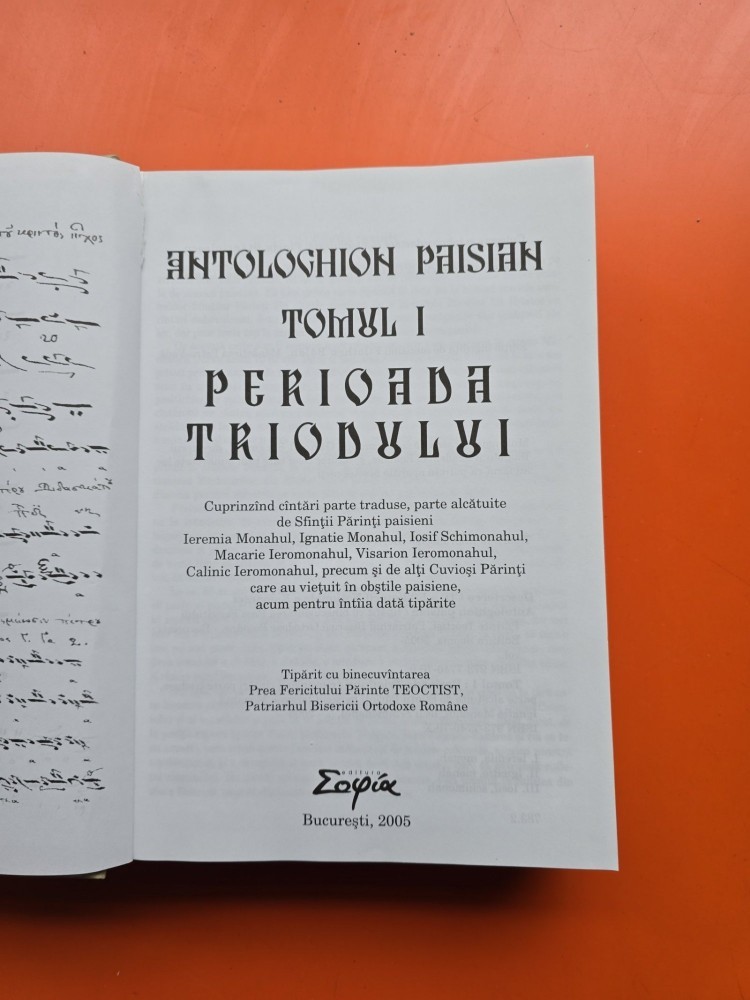 ANTOLOGHION PAISIAN
TOMUL I
PERIOADA
TRIODULUI
Cuprinzînd cîntări parte traduse, parte alcătuite
de Sfinţii Părinţi paisieni
Ieremia Monahul, Ignatie Monahul, Iosif Schimonahul,
Macarie Ieromonahul, Visarion Ieromonahul,
Calinic Ieromonahul, precum şi de alţi Cuvioşi Părinţi
care au vieţuit în obştile paisiene,
acum pentru întîia dată tipărite
Tipărit cu binecuvîntarea
Prea Fericitului Părinte TEOCTIST,
Patriarhul Bisericii Ortodoxe Române
editura
Σοφία
Bucureşti, 2005